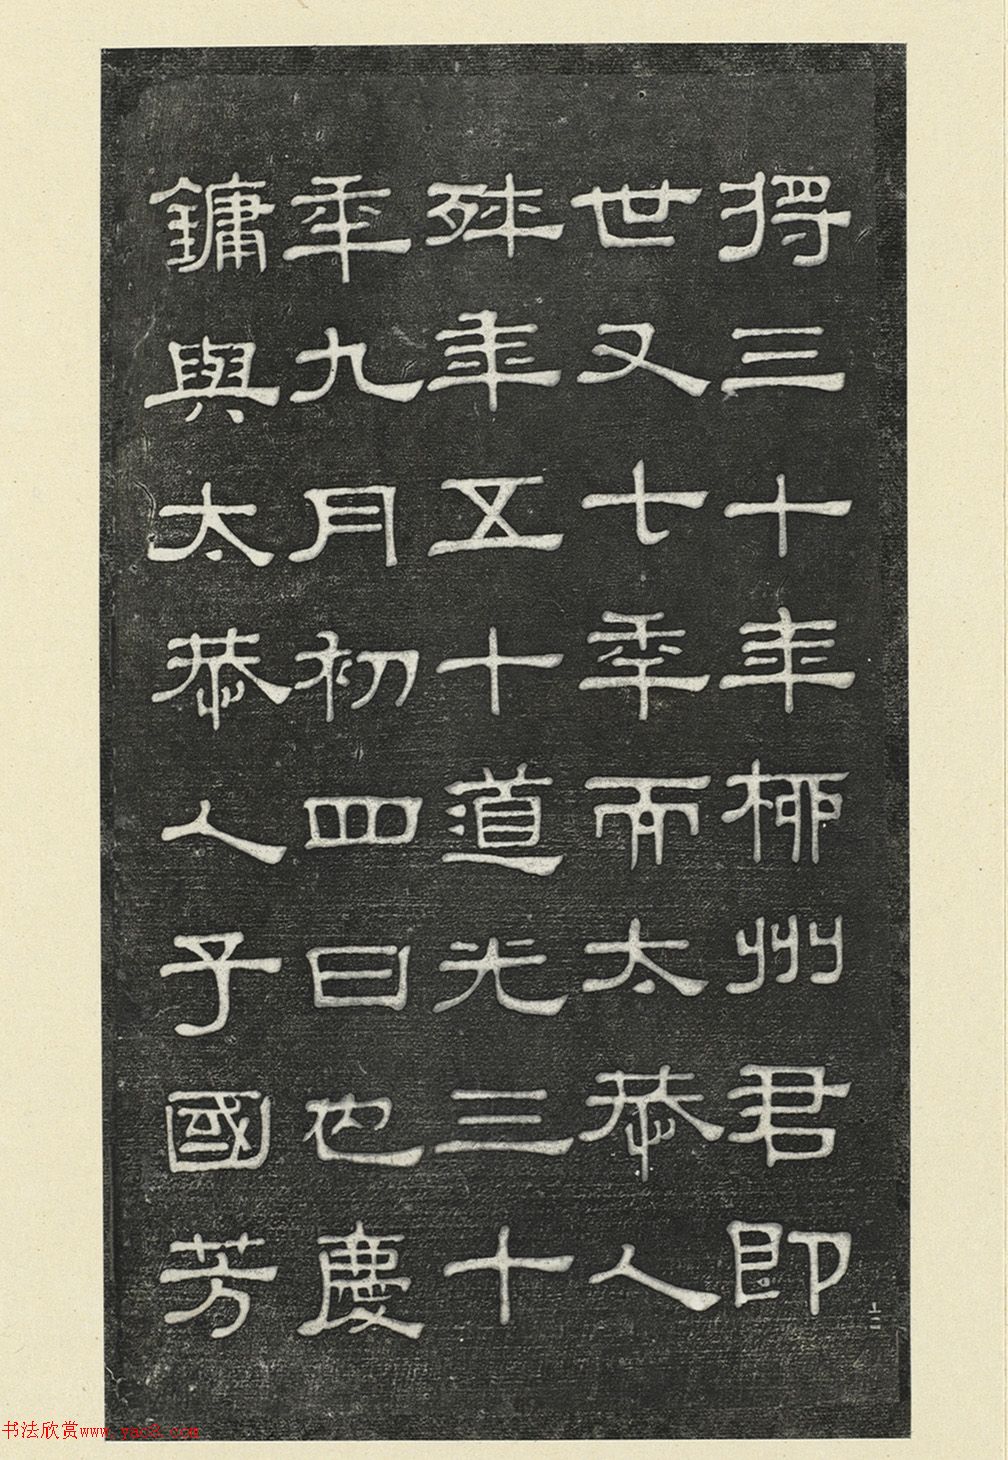 得三十年柳州君即
世又七秊而太恭人
殊年五十道光三十
秊九月初四日也慶
鏞與太恭人子國芳
上二
书法欣赏www.yac8.com